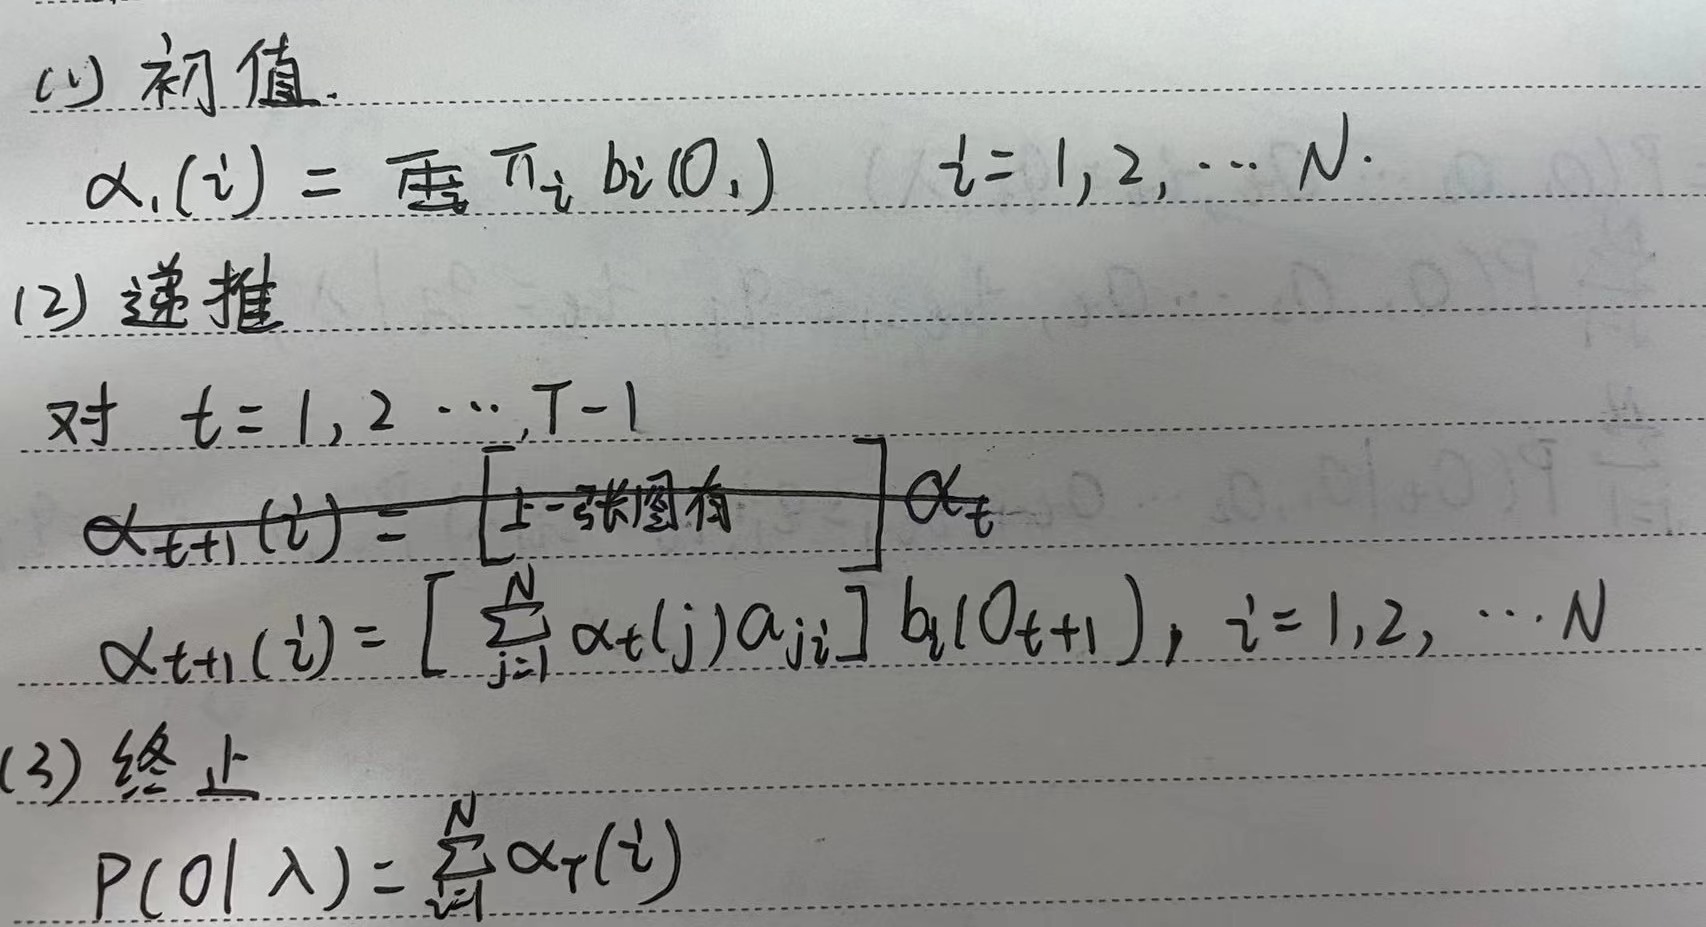 (1) 初值.
α₁(i) = π_i b_i(O₁)   i = 1, 2, ⋯ N.
(2) 递推
对 t = 1, 2 ⋯, T-1
α_{t+1}(i) = [上一张图有] α_t
α_{t+1}(i) = [∑_{j=1}^{N} α_t(j) a_{ji}] b_i(O_{t+1}), i = 1, 2, ⋯ N
(3) 终止
P(O|λ) = ∑_{i=1}^{N} α_T(i)